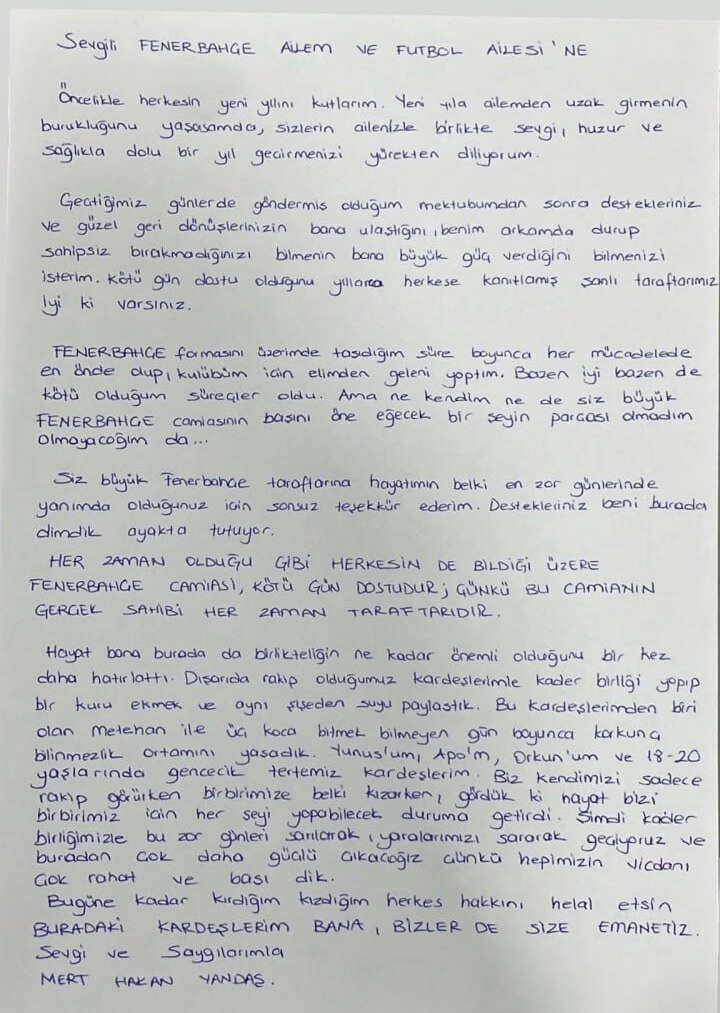 Sevgili FENERBAHÇE AİLEM VE FUTBOL AİLESİ'NE
Öncelikle herkesin yeni yılını kutlarım. Yeni yıla ailemden uzak girmenin
burukluğunu yaşasamda, sizlerin ailenizle birlikte sevgi, huzur ve
sağlıkla dolu bir yıl geçirmenizi yürekten diliyorum.
Geçtiğimiz günlerde göndermiş olduğum mektubumdan sonra destekleriniz
ve güzel geri dönüşlerinizin bana ulaştığını, benim arkamda durup
sahipsiz bırakmadığınızı bilmenin bana büyük güç verdiğini bilmenizi
isterim. Kötü gün dostu olduğunu yıllarca herkese kanıtlamış şanlı taraftarımız
İyi ki varsınız.
FENERBAHÇE formasını üzerimde taşıdığım süre boyunca her mücadelede
en önde olup, kulübüm için elimden geleni yaptım. Bazen iyi bazen de
kötü olduğum süreçler oldu. Ama ne kendim ne de siz büyük
FENERBAHÇE camiasının başını öne eğecek bir şeyin parçası olmadım
Olmayacağım da...
Siz büyük Fenerbahçe taraftarına hayatımın belki en zor günlerinde
yanımda olduğunuz için sonsuz teşekkür ederim. Destekleriniz beni burada
dimdik ayakta tutuyor.
HER ZAMAN OLDUĞU GİBİ HERKESİN DE BİLDİĞİ ÜZERE
FENERBAHÇE CAMİASI, KÖTÜ GÜN DOSTUDUR; ÇÜNKÜ BU CAMİANIN
GERÇEK SAHİBİ HER ZAMAN TARAFTARIDIR.
Hayat bana burada da birlikteliğin ne kadar önemli olduğunu bir kez
daha hatırlattı. Dışarıda rakip olduğumuz kardeşlerimle kader birliği yapıp
bir kuru ekmek ve aynı şişeden suyu paylaştık. Bu kardeşlerimden biri
olan Metehan ile üç koca bitmek bilmeyen gün boyunca korkunç
bilinmezlik ortamını yaşadık. Yunus'um, Apo'm, Orkun'um ve 18-20
yaşlarında gencecik tertemiz kardeşlerim. Biz kendimizi sadece
rakip görürken birbirimize belki kızarken, gördük ki hayat bizi
birbirimiz için her şeyi yapabilecek duruma getirdi. Şimdi kader
birliğimizle bu zor günleri sarılarak, yaralarımızı sararak geçiyoruz ve
buradan çok daha güçlü çıkacağız çünkü hepimizin vicdanı
çok rahat ve başı dik.
Bugüne kadar kırdığım kızdığım herkes hakkını helal etsin
BURADAKİ KARDEŞLERİM BANA, BİZLER DE SİZE EMANETİZ.
Sevgi ve Saygılarımla
MERT HAKAN YANDAŞ.